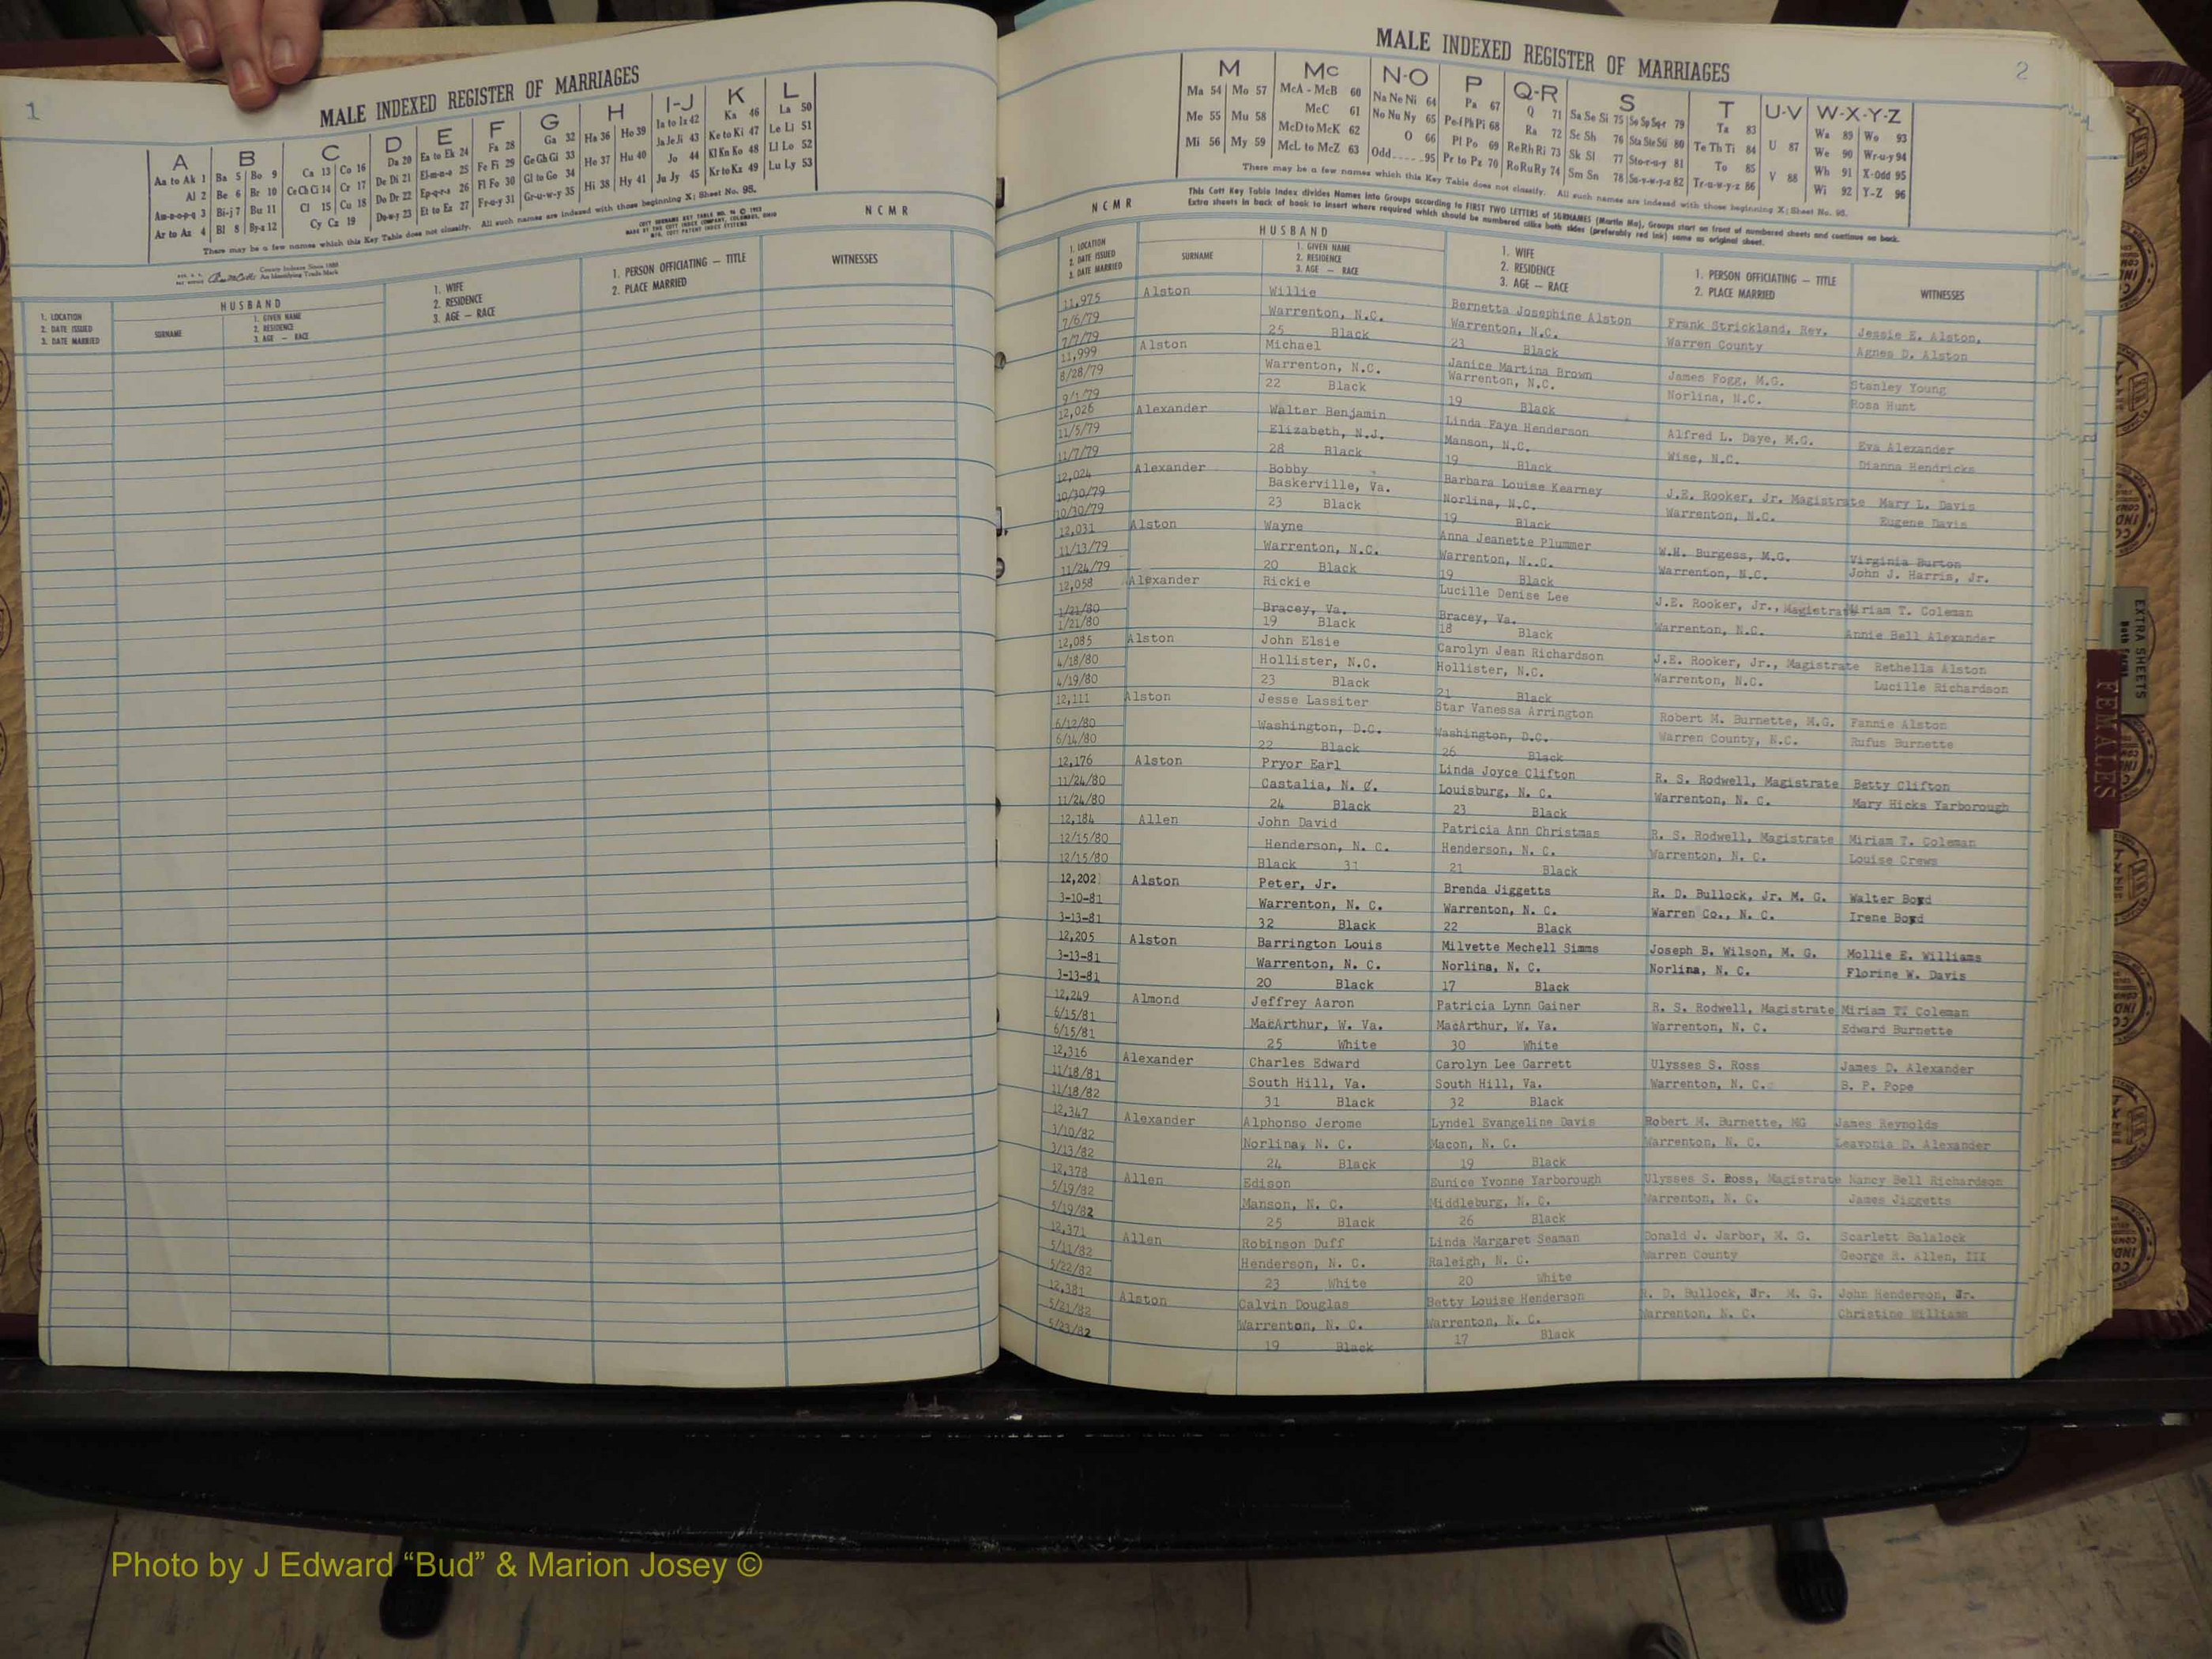 1
MALE INDEXED REGISTER OF MARRIAGES
A B C D E F G H I-J K L
Aa to Ak 1 Ba 5 Bo 9 Ca 13 Co 16 Da 20 Ea to Ek 24 Fa 28 Ga 32 Ha 36 Ho 39 Ia to Iz 42 Ka 46 La 50
Al 2 Be 6 Br 10 Ce Ch Ci 14 Cr 17 De Di 21 El-m-n-o 25 Fe Fi 29 Ge Gh Gi 33 He 37 Hu 40 Ja Je Ji 43 Ke to Ki 47 Le Li 51
Am-n-o-p-q 3 Bi-j 7 Bu 11 Cl 15 Cu 18 Do Dr 22 Ep-q-r-s 26 Fl Fo 30 Gl to Go 34 Hi 38 Hy 41 Jo 44 Kl Kn Ko 48 Ll Lo 52
Ar to Az 4 Bl 8 By-z 12 Cy Cz 19 Du-w-y 23 Et to Ez 27 Fr-u-y 31 Gr-u-w-y 35 Ju Jy 45 Kr to Kz 49 Lu Ly 53
There may be a few names which this Key Table does not classify. All such names are indexed with those beginning X; Sheet No. 95.
NCMR
County Indexes Since 1888
An Identifying Trade Mark
HUSBAND
1. LOCATION
2. DATE ISSUED
3. DATE MARRIED
SURNAME
1. GIVEN NAME
2. RESIDENCE
3. AGE — RACE
1. WIFE
2. RESIDENCE
3. AGE — RACE
1. PERSON OFFICIATING — TITLE
2. PLACE MARRIED
WITNESSES
MALE INDEXED REGISTER OF MARRIAGES
2
M Mc N-O P Q-R S T U-V W-X-Y-Z
Ma 54 Mo 57 McA - McB 60 Na Ne Ni 64 Pa 67 Q 71 Sa Se Si 75 So Sp Sq-r 79 Ta 83 U 87 Wa 89 Wo 93
Me 55 Mu 58 McC 61 No Nu Ny 65 Pe-f Ph Pi 68 Ra 72 Sc Sh 76 Sta Ste Sti 80 Te Th Ti 84 V 88 We 90 Wr-u-y 94
Mi 56 My 59 McD to McK 62 O 66 Pl Po 69 Re Rh Ri 73 Sk Sl 77 Sto-r-u-y 81 To 85 Wh 91 X-odd 95
McL to McZ 63 Odd.....95 Pr to Pz 70 Ro Ru Ry 74 Sm Sn 78 Su-v-w-y-z 82 Tr-u-w-y-z 86 Wi 92 Y-Z 96
There may be a few names which this Key Table does not classify. All such names are indexed with those beginning X; Sheet No. 95.
This Cott Key Table Index divides Names into Groups according to FIRST TWO LETTERS of SURNAMES (Martin Ma), Groups start on front of numbered sheets and continue on back.
Extra sheets in back of book to insert where required which should be numbered alike both sides (preferably red ink) same as original sheet.
NCMR
HUSBAND
1. LOCATION
2. DATE ISSUED
3. DATE MARRIED
SURNAME
1. GIVEN NAME
2. RESIDENCE
3. AGE — RACE
1. WIFE
2. RESIDENCE
3. AGE — RACE
1. PERSON OFFICIATING — TITLE
2. PLACE MARRIED
WITNESSES
11,975 Alston Willie Bernetta Josephine Alston Frank Strickland, Rev. Jessie E. Alston,
7/6/79 Warrenton, N.C. Warrenton, N.C. Warren County Agnes D. Alston
7/7/79 25 Black 23 Black
11,999 Alston Michael Janice Martina Brown James Fogg, M.G. Stanley Young
8/28/79 Warrenton, N.C. Warrenton, N.C. Norlina, N.C. Rosa Hunt
9/1/79 22 Black 19 Black
12,026 Alexander Walter Benjamin Linda Faye Henderson Alfred L. Daye, M.G. Eva Alexander
11/5/79 Elizabeth, N.J. Manson, N.C. Wise, N.C. Dianna Hendricks
11/7/79 28 Black 19 Black
12,024 Alexander Bobby Barbara Louise Kearney J.E. Rooker, Jr. Magistrate Mary L. Davis
10/30/79 Baskerville, Va. Norlina, N.C. Warrenton, N.C. Eugene Davis
10/30/79 23 Black 19 Black
12,031 Alston Wayne Anna Jeanette Plummer W.H. Burgess, M.G. Virginia Burton
11/13/79 Warrenton, N.C. Warrenton, N..C. Warrenton, N.C. John J. Harris, Jr.
11/24/79 20 Black 19 Black
12,058 Alexander Rickie Lucille Denise Lee J.E. Rooker, Jr., Magistrate Miriam T. Coleman
1/21/80 Bracey, Va. Bracey, Va. Warrenton, N.C. Annie Bell Alexander
1/21/80 19 Black 18 Black
12,085 Alston John Elsie Carolyn Jean Richardson J.E. Rooker, Jr., Magistrate Rethella Alston
4/18/80 Hollister, N.C. Hollister, N.C. Warrenton, N.C. Lucille Richardson
4/19/80 23 Black 21 Black
12,111 Alston Jesse Lassiter Star Vanessa Arrington Robert M. Burnette, M.G. Fannie Alston
6/12/80 Washington, D.C. Washington, D.C. Warren County, N.C. Rufus Burnette
6/14/80 22 Black 26 Black
12,176 Alston Pryor Earl Linda Joyce Clifton R. S. Rodwell, Magistrate Betty Clifton
11/24/80 Castalia, N. C. Louisburg, N. C. Warrenton, N. C. Mary Hicks Yarborough
11/24/80 24 Black 23 Black
12,184 Allen John David Patricia Ann Christmas R. S. Rodwell, Magistrate Miriam T. Coleman
12/15/80 Henderson, N. C. Henderson, N. C. Warrenton, N. C. Louise Crews
12/15/80 Black 31 21 Black
12,202 Alston Peter, Jr. Brenda Jiggetts R. D. Bullock, Jr. M. G. Walter Boyd
3-10-81 Warrenton, N. C. Warrenton, N. C. Warren Co., N. C. Irene Boyd
3-13-81 32 Black 22 Black
12,205 Alston Barrington Louis Milvette Mechell Simms Joseph B. Wilson, M. G. Mollie E. Williams
3-13-81 Warrenton, N. C. Norlina, N. C. Norlina, N. C. Florine W. Davis
3-13-81 20 Black 17 Black
12,249 Almond Jeffrey Aaron Patricia Lynn Gainer R. S. Rodwell, Magistrate Miriam T. Coleman
6/15/81 MacArthur, W. Va. MacArthur, W. Va. Warrenton, N. C. Edward Burnette
6/15/81 25 White 30 White
12,316 Alexander Charles Edward Carolyn Lee Garrett Ulysses S. Ross James D. Alexander
11/18/81 South Hill, Va. South Hill, Va. Warrenton, N. C. B. P. Pope
11/18/82 31 Black 32 Black
12,347 Alexander Alphonso Jerome Lyndel Evangeline Davis Robert M. Burnette, MG James Reynolds
3/10/82 Norlina, N. C. Macon, N. C. Warrenton, N. C. Leavonia D. Alexander
3/13/82 24 Black 19 Black
12,378 Allen Edison Eunice Yvonne Yarborough Ulysses S. Ross, Magistrate Nancy Bell Richardson
5/19/82 Manson, N. C. Middleburg, N. C. Warrenton, N. C. James Jiggetts
5/19/82 25 Black 26 Black
12,371 Allen Robinson Duff Linda Margaret Seaman Donald J. Jarbor, M. G. Scarlett Balalock
5/11/82 Henderson, N. C. Raleigh, N. C. Warren County George R. Allen, III
5/22/82 23 White 20 White
12,381 Alston Calvin Douglas Betty Louise Henderson R. D. Bullock, Jr. M. G. John Henderson, Jr.
5/21/82 Warrenton, N. C. Warrenton, N. C. Warrenton, N. C. Christine Williams
5/23/82 19 Black 17 Black
EXTRA SHEETS
FEMALES
Photo by J Edward “Bud” & Marion Josey ©